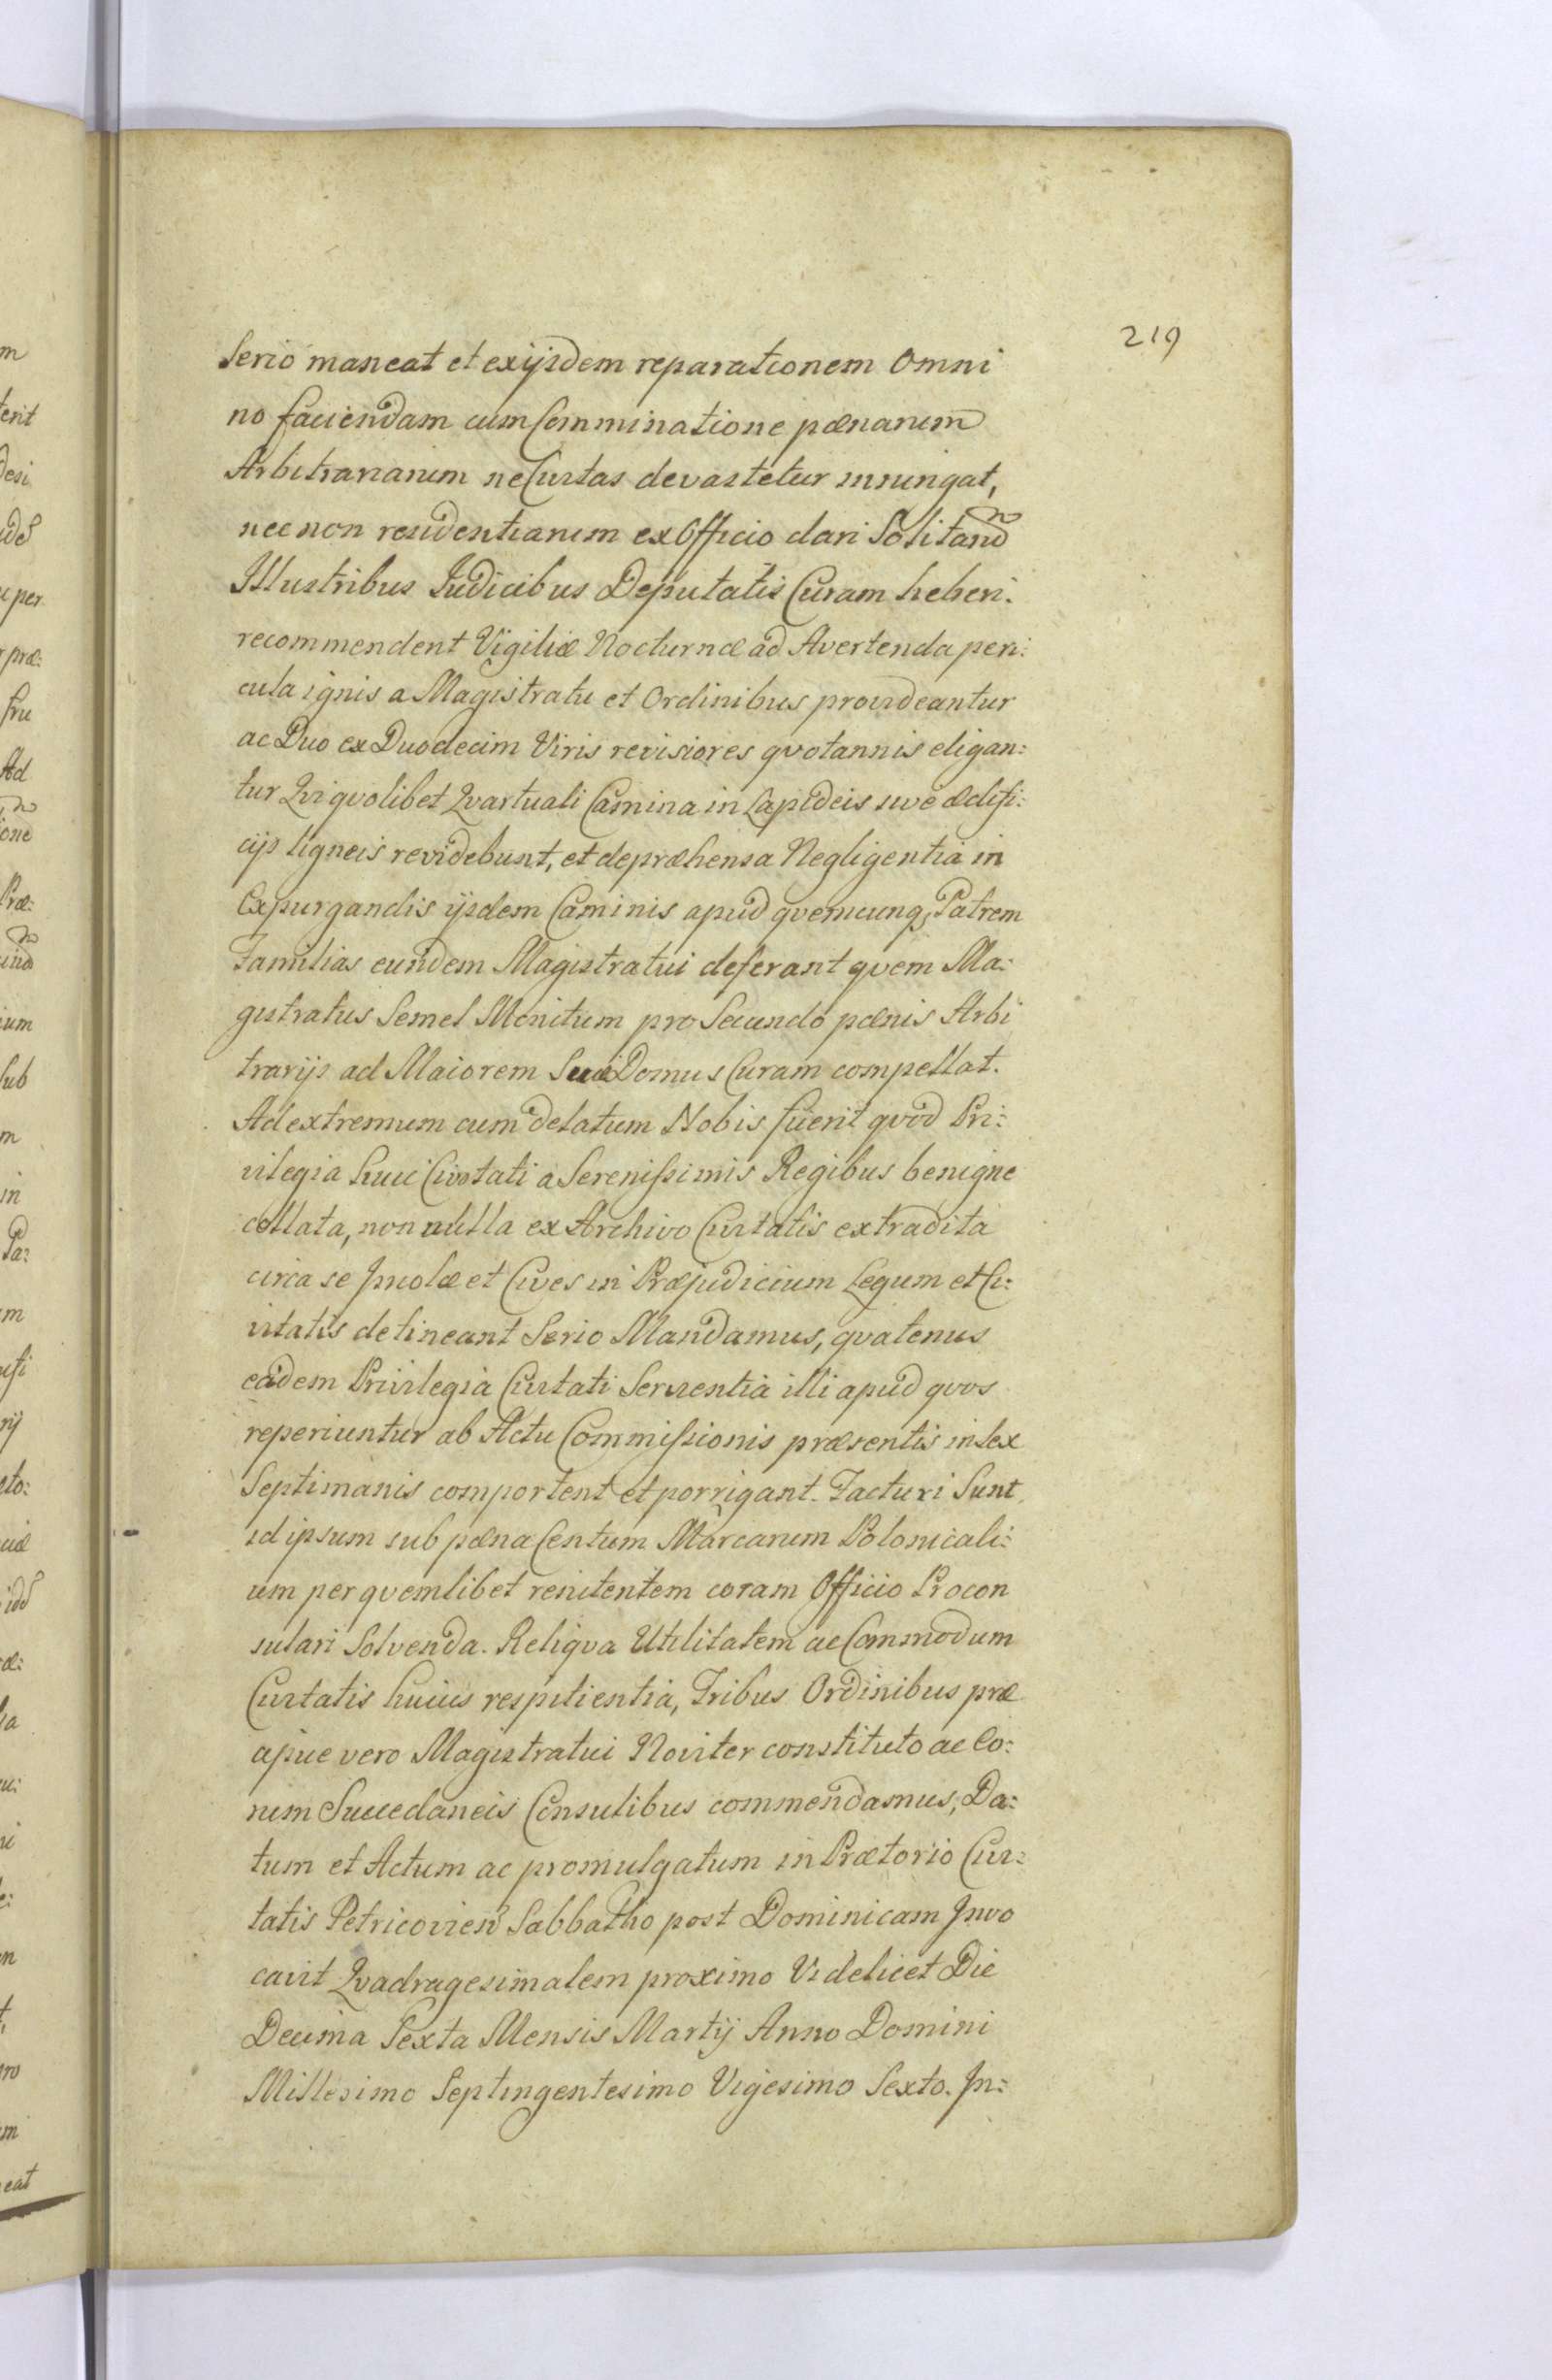 219
Serio maneat et exijsdem reparationem Omni
no faciendam cum Comminatione pænarum
Arbitrariarum ne Civitas devastetur iniungat,
nec non residentiarum ex Officio dari Solitarũ
Illustribus Iudicibus Deputatis Curam heberi:
recommendent Vigiliæ Nocturnæ ad Avertenda peri:
cula ignis a Magistratu et Ordinibus provideantur
ac Duo ex Duodecim Viris revisiores qvotannis eligan:
tur Qvi qvolibet Qvartuali Camina in Lapideis sive ædifi:
cijs ligneis revidebunt, et depræhensa Negligentia in
Expurgandis ijsdem Caminis apud qvemcunq, Patrem
Familias eundem Magistratui deferant qvem Ma:
gistratus Semel Monitum pro Secundo pænis Arbi
trarijs ad Maiorem Suæ Domus Curam compellat.
Ad extremum cum delatum Nobis fuerit qvod Pri:
vilegia huic Civitati a Serenissimis Regibus benigne
collata, non nulla ex Archivo Civitatis extradita
circa se Incolæ et Cives in Præjudicium Legum et Ci:
vitatis detineant Serio Mandamus, qvatenus
eadem Privilegia Civitati Servientia illi apud qvos
reperiuntur ab Actu Commissionis præsentis in sex
Septimanis comportent et porrigant. Facturi Sunt
id ipsum sub pæna Centum Marcarum Polonicali:
um per qvemlibet renitentem coram Officio Procon
sulari Solvenda. Reliqva Utilitatem ac Commodum
Civitatis huius respitientia, Tribus Ordinibus præ
cipue vero Magistratui Noviter constituto ac Eo:
rum Succedaneis Consulibus commendamus, Da:
tum et Actum ac promulgatum in Prætorio Civi:
tatis Petricovien Sabbatho post Dominicam Invo
cavit Qvadragesimalem proximo Videlicet Die
Decima Sexta Mensis Martij Anno Domini
Millesimo Septingentesimo Vigesimo Sexto. In: